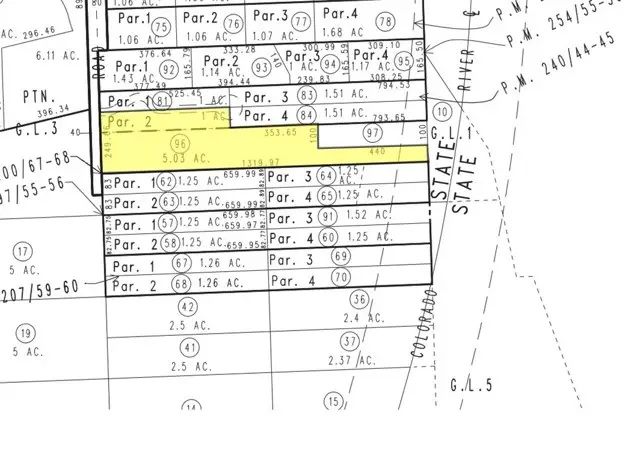 Par.1 75 1.06 AC.
Par.2 76 1.06 AC.
Par.3 77 1.07 AC.
Par.4 78 1.68 AC
P.M.
P.M. 254/55-5
P.M. 240/44-45
AC. 296.46
6.11 AC.
PTN.
396.34
G.L.3
ROAD
RIVER
376.64
333.28
300.99
309.10
Par.1 92 1.43 AC.
165.79
Par.2 93 1.14 AC
Par.3 94 1 AC.
Par.4 95 1.17 AC.
165.50
377.49
394.44
239.83
308.25
525.45
794.53
Par. 1 81 1 AC.
Par. 3 83 1.51 AC.
Par. 2 1 AC
Par. 4 84 1.51 AC.
793.65
10
40
353.65
100
97
100
G.L.1
96
5.03 AC.
440
1319.97
STATE
STATE
00/67-68
97/55-56
83 Par. 1 62 1.25 AC. 659.99
Par. 3 64 1.25 AC.
83 Par. 2 63 1.25 AC.
Par. 4 65 1.25 AC.
82.75 Par. 1 57 1.25 AC. 659.98 659.97
82.77
Par. 3 91 1.52 AC.
82.75 Par. 2 58 1.25 AC. 659.95
82.77
Par. 4 60 1.25 AC.
17
5 AC.
Par. 1 67 1.26 AC.
Par. 3 69
207/59-60
Par. 2 68 1.26 AC.
Par. 4 70
COLORADO
42
2.5 AC.
36
2.4 AC.
19
5 AC.
41
2.5 AC.
37
2.37 AC.
G.L.5
14
15